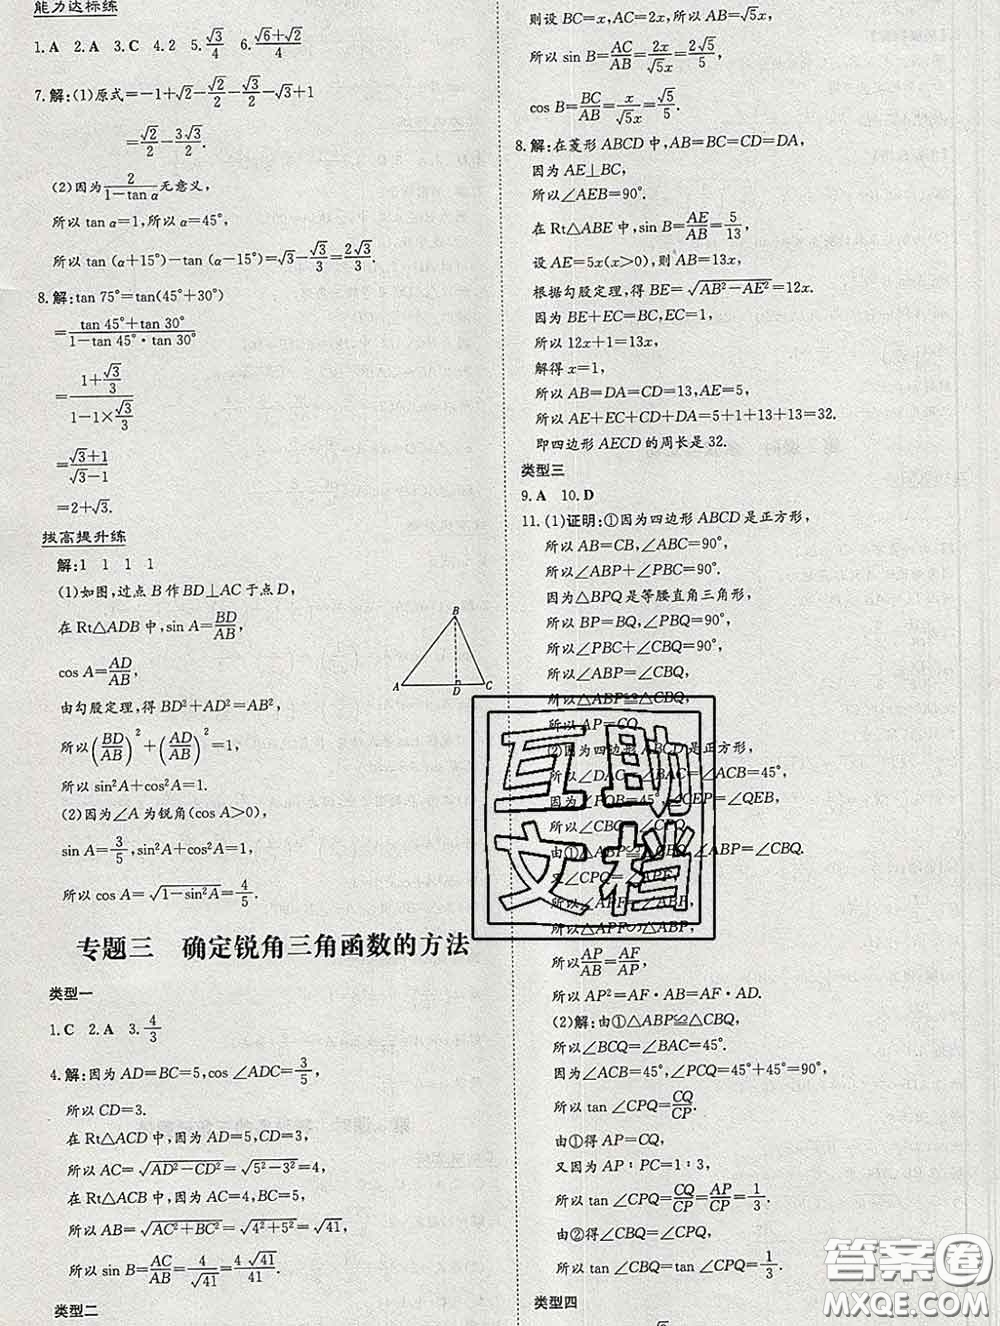 能力达标练
1. A  2. A  3. C  4. 2  5. √3/4  6. (√6+√2)/4
7. 解:(1)原式=-1+√2-√2/2-√3/2-√3+1
=√2/2-3√3/2.
(2)因为2/(1-tan α)无意义,
所以 tan α=1,所以 α=45°,
所以 tan (α+15°)-tan (α-15°)=√3-√3/3=2√3/3.
8. 解:tan 75°=tan(45°+30°)
=(tan 45°+tan 30°)/(1-tan 45°·tan 30°)
=(1+√3/3)/(1-1×√3/3)
=(√3+1)/(√3-1)
=2+√3.
拔高提升练
解:1  1  1  1
(1)如图,过点 B 作 BD⊥AC 于点 D,
在 Rt△ADB 中,sin A=BD/AB,
cos A=AD/AB,
由勾股定理,得 BD²+AD²=AB²,
所以(BD/AB)²+(AD/AB)²=1,
所以 sin²A+cos²A=1.
(2)因为∠A 为锐角(cos A>0),
sin A=3/5,sin²A+cos²A=1,
所以 cos A=√(1-sin²A)=4/5.
B
A D C
专题三 确定锐角三角函数的方法
类型一
1. C  2. A  3. 4/3
4. 解:因为 AD=BC=5,cos ∠ADC=3/5,
所以 CD=3.
在 Rt△ACD 中,因为 AD=5,CD=3,
所以 AC=√(AD²-CD²)=√(5²-3²)=4,
在 Rt△ACB 中,因为 AC=4,BC=5,
所以 AB=√(AC²+BC²)=√(4²+5²)=√41,
所以 sin B=AC/AB=4/√41=4√41/41.
类型二
则设 BC=x,AC=2x,所以 AB=√5x,
所以 sin B=AC/AB=2x/√5x=2√5/5,
cos B=BC/AB=x/√5x=√5/5.
8. 解:在菱形 ABCD 中,AB=BC=CD=DA,
因为 AE⊥BC,
所以∠AEB=90°.
在 Rt△ABE 中,sin B=AE/AB=5/13,
设 AE=5x(x>0),则 AB=13x,
根据勾股定理,得 BE=√(AB²-AE²)=12x.
因为 BE+EC=BC,EC=1,
所以 12x+1=13x,
解得 x=1,
所以 AB=DA=CD=13,AE=5,
所以 AE+EC+CD+DA=5+1+13+13=32.
即四边形 AECD 的周长是 32.
类型三
9. A  10. D
11. (1)证明:①因为四边形 ABCD 是正方形,
所以 AB=CB,∠ABC=90°,
所以∠ABP+∠PBC=90°,
因为△BPQ 是等腰直角三角形,
所以 BP=BQ,∠PBQ=90°,
所以∠PBC+∠CBQ=90°,
所以∠ABP=∠CBQ,
所以△ABP≌△CBQ,
所以 AP=CQ.
②因为四边形 ABCD 是正方形,
所以∠DAC=∠BAC=∠ACB=45°,
因为∠PQB=45°,∠CEP=∠QEB,
所以∠CBQ=∠CPQ,
由①△ABP≌△CBQ,∠ABP=∠CBQ.
又∠CPQ=∠APF,
所以∠APF=∠ABP,
所以△APF∽△ABP,
所以AP/AB=AF/AP,
所以 AP²=AF·AB=AF·AD.
(2)解:由①△ABP≌△CBQ,
所以∠BCQ=∠BAC=45°.
因为∠ACB=45°,∠PCQ=45°+45°=90°,
所以 tan ∠CPQ=CQ/CP,
由①得 AP=CQ,
又因为 AP∶PC=1∶3,
所以 tan ∠CPQ=CQ/CP=AP/CP=1/3.
由②得∠CBQ=∠CPQ,
所以 tan ∠CBQ=tan ∠CPQ=1/3.
类型四
互助
文档
答案圈
MXQE.COM